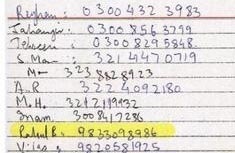 0300 432 3983
Jahangir: 0300 8563799
0300 8295848
S. Man: 321 4470719
323 8828923
A.R 322 4092180
M.H. 321 2119932
Inam. 300 8417286
Rahul B: 9833098986
Vilas: 9820581925